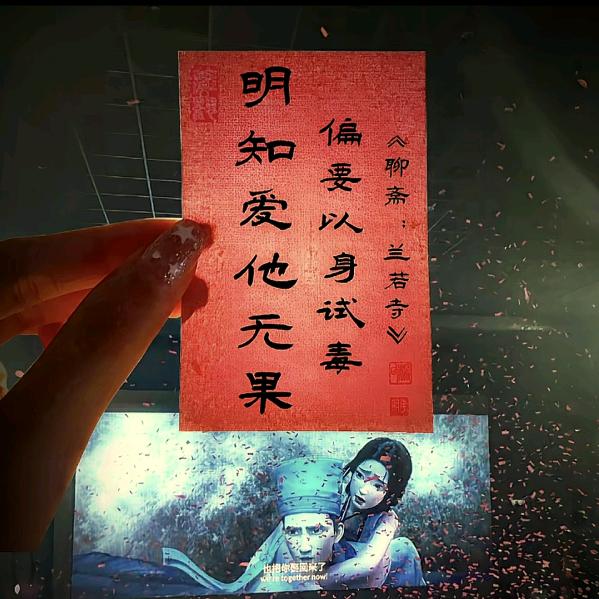 明知爱他无果
偏要以身试毒
《聊斋：兰若寺》
也把你娶回来了
we're together now!